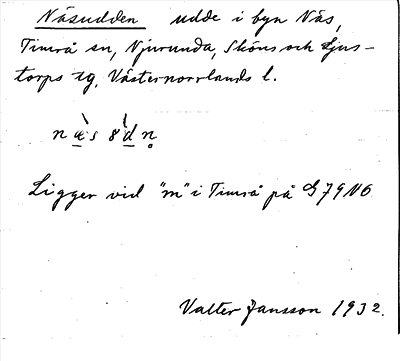 Näsudden udde i byn Näs,
Timrå sn, Njurunda, Sköns och Ljus-
torps tg, Västernorrlands l.
Ligger vid "m" i Timrå på G 79 NO
Valter Jansson 1932.